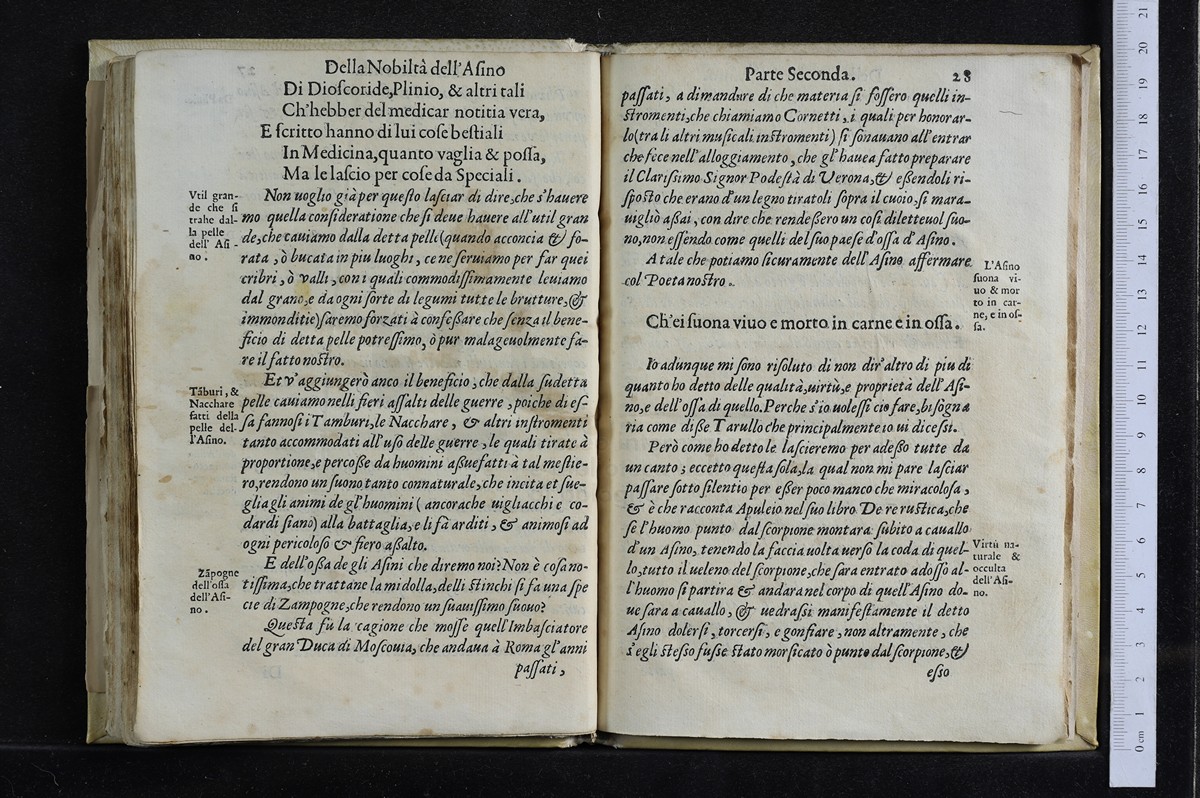 Della Nobiltà dell'Asino
Di Dioscoride, Plinio, & altri tali
Ch'hebber del medicar notitia vera,
E scritto hanno di lui cose bestiali
In Medicina, quanto vaglia & possa,
Ma le lascio per cose da Speciali.
Vtil gran-
de che si
trahe dal-
la pelle
dell'Asi-
no.
Non uoglio già per questo lasciar di dire, che s'hauere
mo quella consideratione che si deue hauere all'util gran
de, che cauiamo dalla detta pelle (quando acconcia & fo-
rata, ò bucata in piu luoghi, ce ne seruiamo per far quei
cribri, ò valli, con i quali commodissimamente leuiamo
dal grano, e da ogni sorte di legumi tutte le brutture, &
immonditie) saremo forzati à confeßare che senza il bene-
ficio di detta pelle potressimo, ò pur malageuolmente fa-
re il fatto nostro.
Tãburi, &
Nacchare
fatti della
pelle del-
l'Asino.
Et v'aggiungerò anco il beneficio, che dalla sudetta
pelle cauiamo nelli fieri assalti delle guerre, poiche di es-
sa fannosi i Tamburi, le Nacchare, & altri instromenti
tanto accommodati all'uso delle guerre, le quali tirate à
proportione, e percoße da huomini aßuefatti à tal mestie-
ro, rendono un suono tanto connaturale, che incita et sue-
glia gli animi de gl'huomini (ancorache uigliacchi e co-
dardi siano) alla battaglia, e li fà arditi, & animosi ad
ogni pericoloso & fiero aßalto.
Zãpogne
dell'ossa
dell'Asi-
no.
E dell'oßa de gli Asini che diremo noi? Non è cosa no-
tissima, che trattane la midolla, delli stinchi si fa una spe
cie di Zampogne, che rendono un suauissimo suouo?
Questa fù la cagione che mosse quell'Imbasciatore
del gran Duca di Moscouia, che andaua à Roma gl'anni
passati,
Parte Seconda. 28
passati, a dimandare di che materia si fossero quelli in-
stromenti, che chiamiamo Cornetti, i quali per honorar-
lo (tra li altri musicali instromenti) si sonauano all'entrar
che fece nell'alloggiamento, che gl'hauea fatto preparare
il Clarissimo Signor Podestà di Verona, & eßendoli ri-
sposto che erano d'un legno tiratoli sopra il cuoio, si mara-
uigliò aßai, con dire che rendeßero un cosi diletteuol suo-
no, non essendo come quelli del suo paese d'ossa d'Asino.
A tale che potiamo sicuramente dell'Asino affermare
col Poeta nostro.
L'Asino
suona vi-
uo & mor
to in car-
ne, e in os-
sa.
Ch'ei suona viuo e morto in carne e in ossa.
Io adunque mi sono risoluto di non dir'altro di piu di
quanto ho detto delle qualità, uirtù, e proprietà dell'Asi-
no, e dell'ossa di quello. Perche s'io uolessi cio fare, bisogna
ria come diße Tarullo che principalmente io ui dicessi.
Però come ho detto le lascieremo per adeßo tutte da
un canto; eccetto questa sola, la qual non mi pare lasciar
passare sotto silentio per eßer poco manco che miracolosa,
& è che racconta Apuleio nel suo libro De re rustica, che
se l'huomo punto dal scorpione montara subito a cauallo
d'un Asino, tenendo la faccia uolta uerso la coda di quel-
lo, tutto il ueleno del scorpione, che sara entrato adosso al-
l'huomo si partira & andara nel corpo di quell'Asino do-
ue sara a cauallo, & uedrassi manifestamente il detto
Asino dolersi, torcersi, e gonfiare, non altramente, che
s'egli steßo fusse stato morsicato ò punto dal scorpione, &
Virtù na-
turale &
occulta
dell'Asi-
no.
esso
0 cm 1 2 3 4 5 6 7 8 9 10 11 12 13 14 15 16 17 18 19 20 21